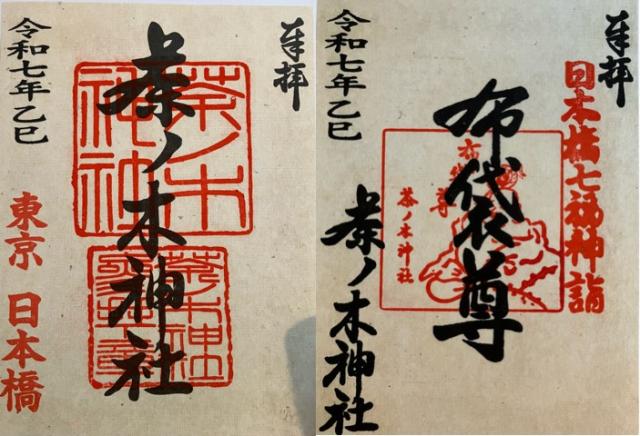 奉拝
茶ノ木神社
茶ノ木
神社
令和七年乙巳
東京 日本橋
奉拝
日本橋七福神詣
布袋尊
茶ノ木神社
茶ノ木神社
令和七年乙巳